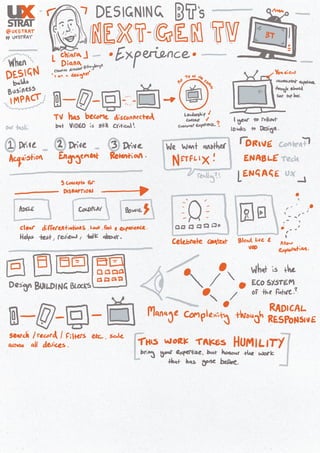 UX
STRAT
@UXSTRAT
# UXSTRAT
DESIGNING BT's
NEXT-GEN TV
Experience
BT
Chiara
Diana
designer
When
DESIGN
builds
Business
IMPACT
TV has become disconnected
but VIDEO is still critical!
Leadership/
content
customer experience?
1 year to reboot
leads to Design.
our task
1 Drive
Acquisition
2 Drive
Engagement
3 Drive
Retention.
We want another
NETFLIX!
really?!
DRIVE Content
ENABLE Tech
ENGAGE UX
3 concepts for
DISRUPTION
AGILE
COLDPLAY
BOWIE
clear differentiations. Look, feel & experience
Helps test, review, talk about.
Celebrate content
Blend live &
VOD
Allow
Exploration.
Design BUILDING BLOCKS
What is the
ECOSYSTEM
of the future?
Manage Complexity through RADICAL
RESPONSIVE
search / record / filters etc. scale
across all devices.
THIS WORK TAKES HUMILITY
bring your expertise, but honour the work
that has gone before.